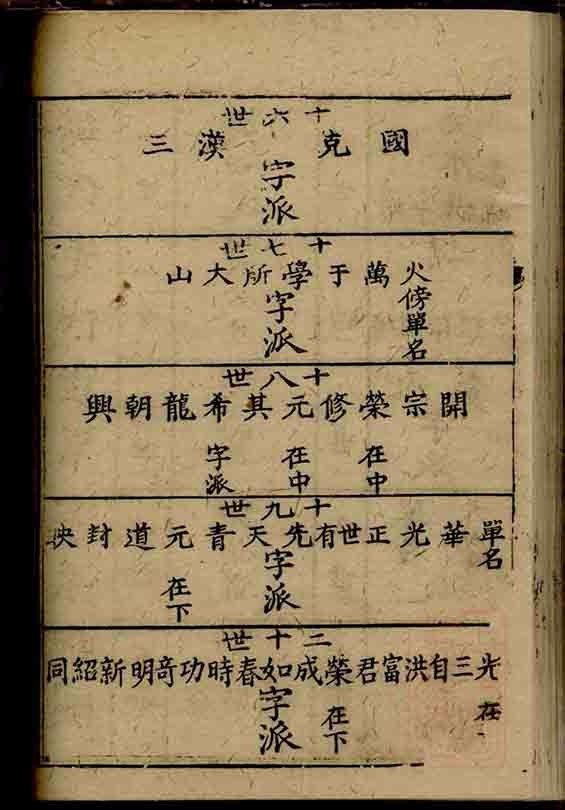 十六世
國克漢三
字派
十七世
火傍單名
萬于學所大山
字派
十八世
開宗榮修元其希龍朝興
在中
在中
字派
十九世
單名
華光正世有先天青元道封映
字派
在下
二十世
光三自洪富君榮成如春時功奇明新紹同
在
在下
字派